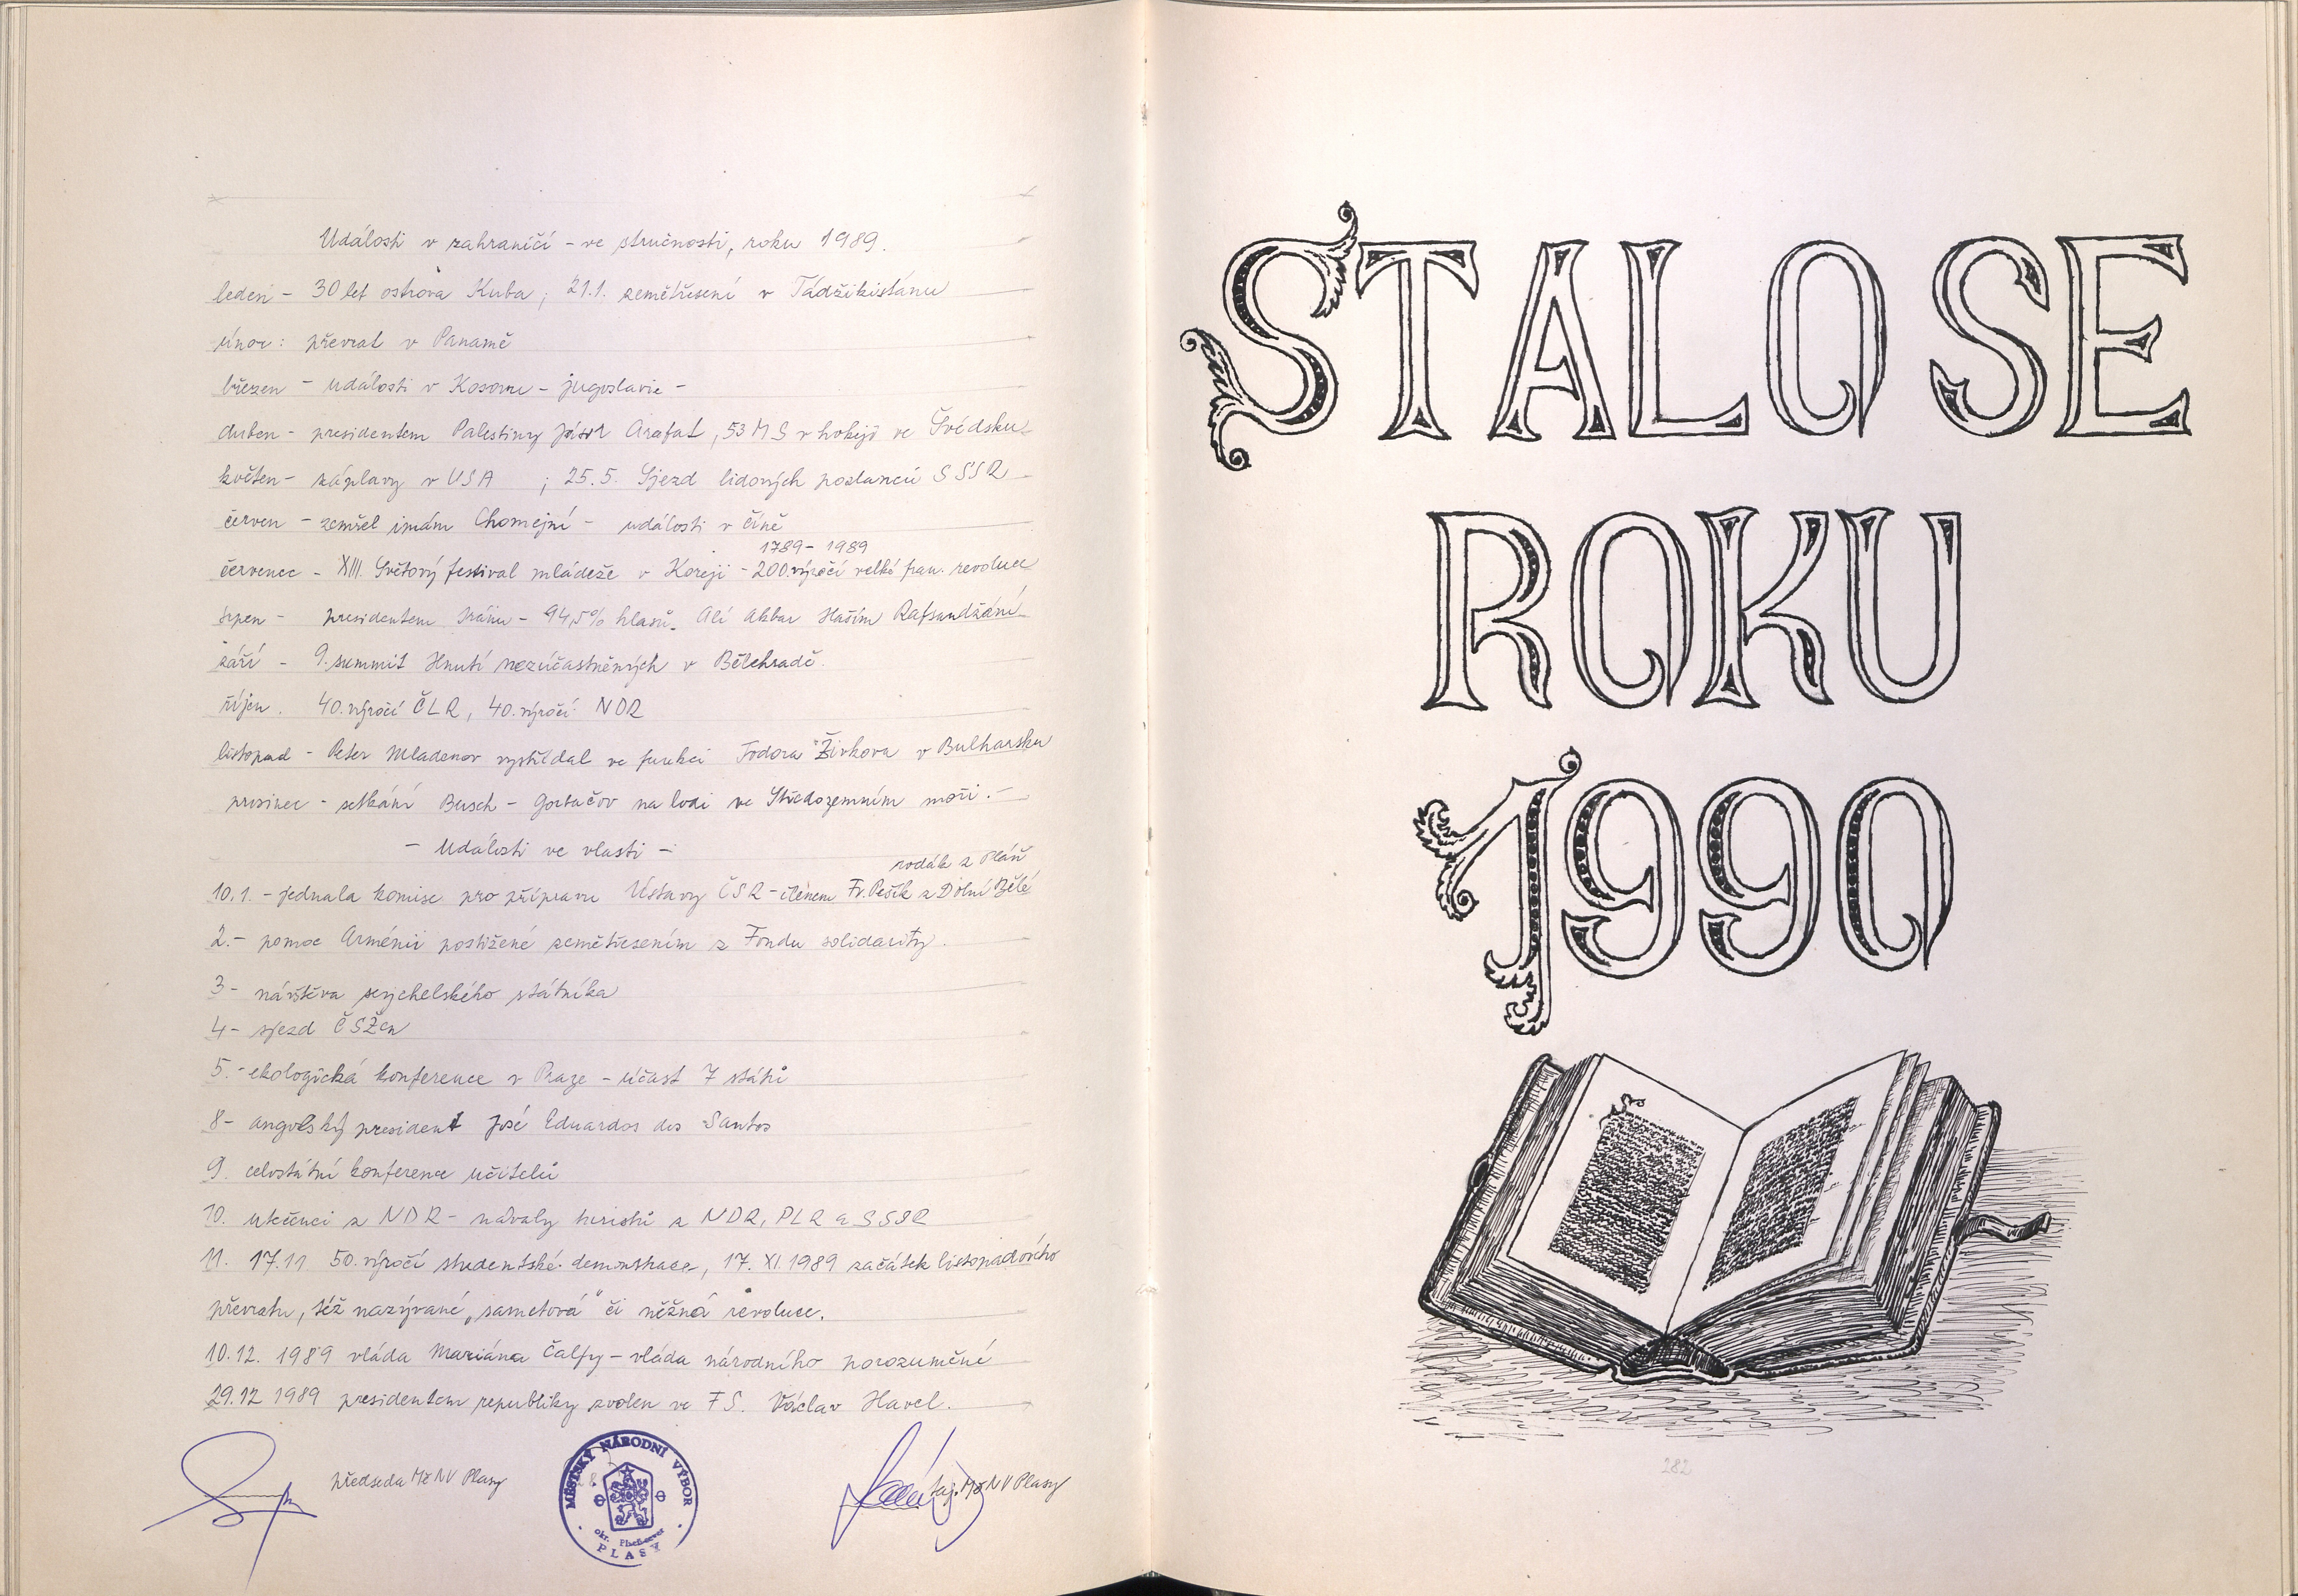 Události v zahraničí - ve stručnosti, roku 1989.
leden - 30 let ostrova Kuba; 21.1. zemětřesení v Tádžikistánu
únor: převrat v Panamě
březen - události v Kosovu - Jugoslavie -
duben - presidentem Palestiny Jásir Arafat, 53 MS v hokeji ve Švédsku
květen - záplavy v USA ; 25.5. Sjezd lidových poslanců SSSR
červen - zemřel imám Chomejní - události v číně
1789 - 1989
červenec - XIII. Světový festival mládeže v Koreji - 200. výročí velké fran. revoluce
srpen - presidentem Iránu - 94,5% hlasů. Alí Akbar Haším Rafsandžání
září - 9. summit Hnutí nezúčastněných v Bělehradě.
říjen. 40. výročí ČLR, 40. výročí NDR
listopad - Peter Mladenov vystřídal ve funkci Todora Živkova v Bulharsku
prosinec - setkání Busch - Gorbačov na lodi ve Středozemním moři. -
- Události ve vlasti -
rodák z Pláň
10.1. - jednala komise pro přípravu Ústavy ČSR - členem Fr. Pešík z Dolní Bělé
2. - pomoc Arménii postižené zemětřesením z Fondu solidarity.
3 - návštěva seychelského státníka
4 - sjezd ČSŽen
5. - ekologická konference v Praze - účast 7 států
8 - angolský president José Eduardos dos Santos
9. celostátní konference učitelů
10. utečenci z NDR - návaly turistů z NDR, PLR a SSSR
11. 17.11 50. výročí studentské demonstrace, 17. XI. 1989 začátek listopadového
převratu, též nazývané „sametová" či něžná revoluce.
10.12. 1989 vláda Mariána Čalfy - vláda národního porozumění
29.12 1989 presidentem republiky zvolen ve FS. Václav Havel.
předseda MěNV Plasy
MĚSTSKÝ NÁRODNÍ VÝBOR
okr. Plzeň-sever
PLASY
taj. MěNV Plasy
STALO SE
ROKU
1990
282